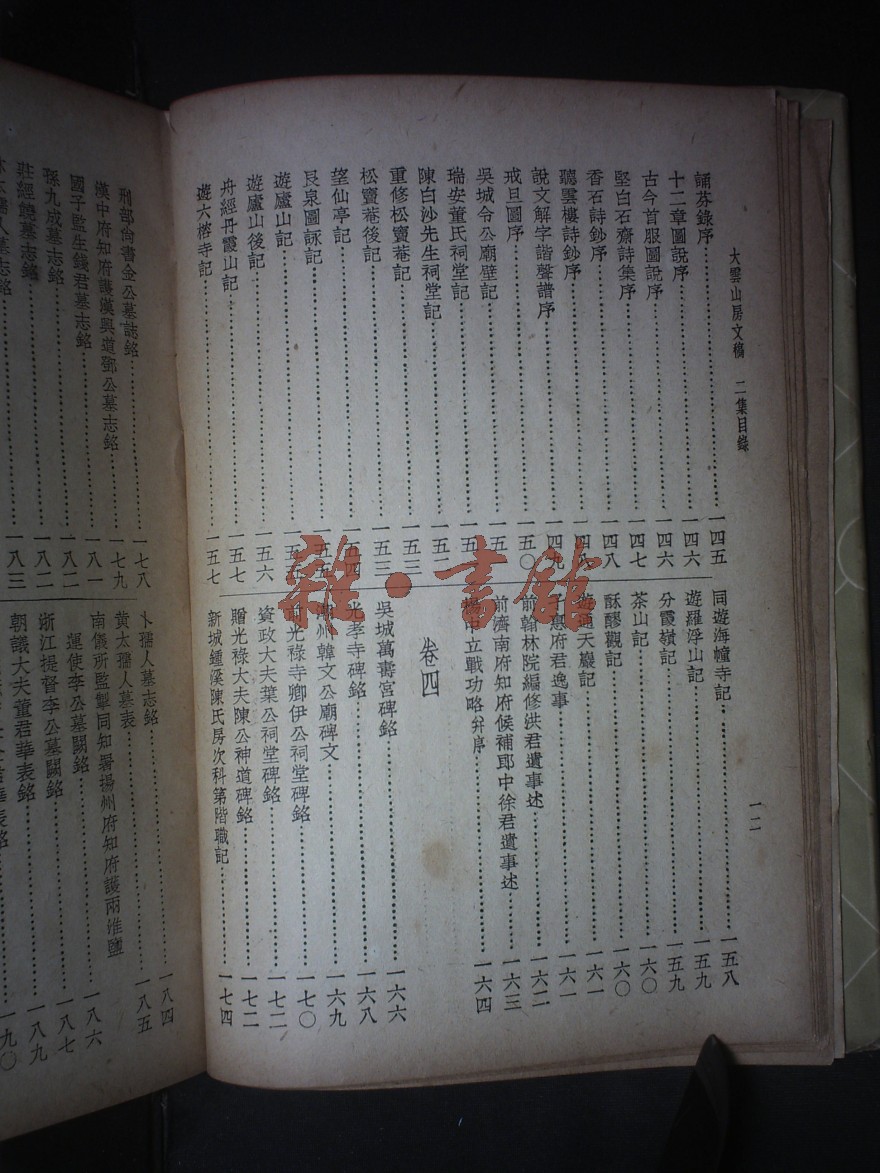 大雲山房文稿 二集目錄
一二
誦芬錄序……一四五
十二章圖說序……一四六
古今首服圖說序……一四七
堅白石齋詩集序……一四八
香石詩鈔序……一四八
聽雲樓詩鈔序……一四九
說文解字諧聲譜序……一五〇
戒旦圖序……一五
吳城令公廟壁記……一五
瑞安董氏祠堂記……一五
陳白沙先生祠堂記……一五二
重修松竇菴記……一五三
松竇菴後記……一五三
望仙亭記……一五四
艮泉圖詠記……一五五
遊廬山記……一五五
遊廬山後記……一五六
舟經丹霞山記……一五七
遊六榕寺記……一五七
同遊海幢寺記……一五八
遊羅浮山記……一五九
分霞嶺記……一五九
茶山記……一六〇
酥醪觀記……一六〇
遊通天巖記……一六一
子惠府君逸事……一六一
前翰林院編修洪君遺事述……一六二
前濟南府知府候補郎中徐君遺事述……一六三
中立戰功略并序……一六四
卷四
吳城萬壽宮碑銘……一六六
光孝寺碑銘……一六八
潮州韓文公廟碑文……一六九
前光祿寺卿伊公祠堂碑銘……一七〇
資政大夫葉公祠堂碑銘……一七二
贈光祿大夫陳公神道碑銘……一七二
新城鍾溪陳氏房次科第階職記……一七四
刑部尙書金公墓誌銘……一七八
漢中府知府護漢興道鄧公墓志銘……一七九
國子監生錢君墓志銘……一八一
孫九成墓志銘……一八二
莊經饒墓志銘……一八二
孺人墓志銘……一八三
卜孺人墓志銘……一八四
黃太孺人墓表……一八五
南儀所監掣同知署揚州府知府護兩淮鹽
運使李公墓闕銘……一八六
浙江提督李公墓闕銘……一八七
朝議大夫董君華表銘……一八九
華表銘……一九〇
雜·書館